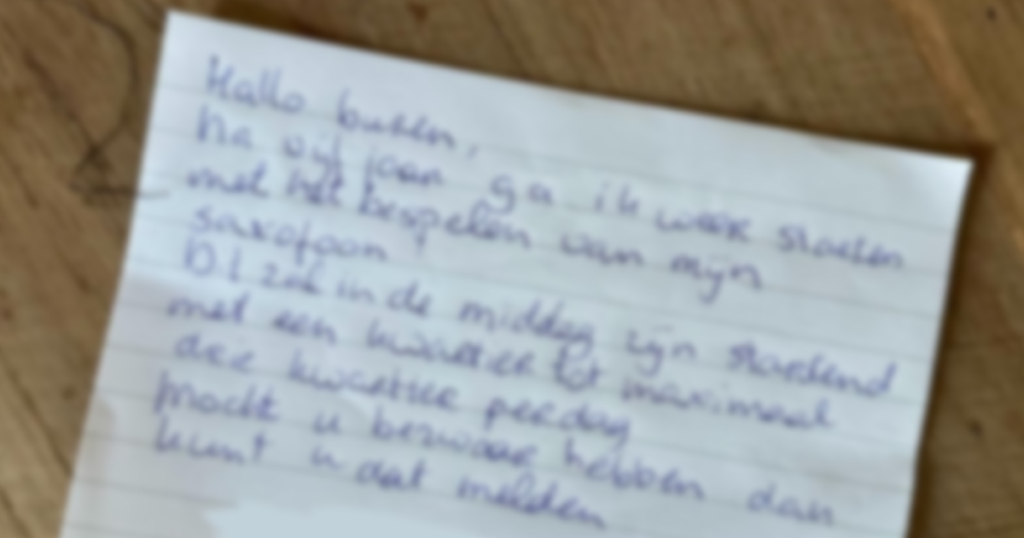 Hallo buren,
na vijf jaar ga ik weer starten
met het bespelen van mijn
saxofoon!
Dit zal in de middag zijn startend
met een kwartier tot maximaal
drie kwartier per dag
Mocht u bezwaar hebben dan
kunt u dat melden